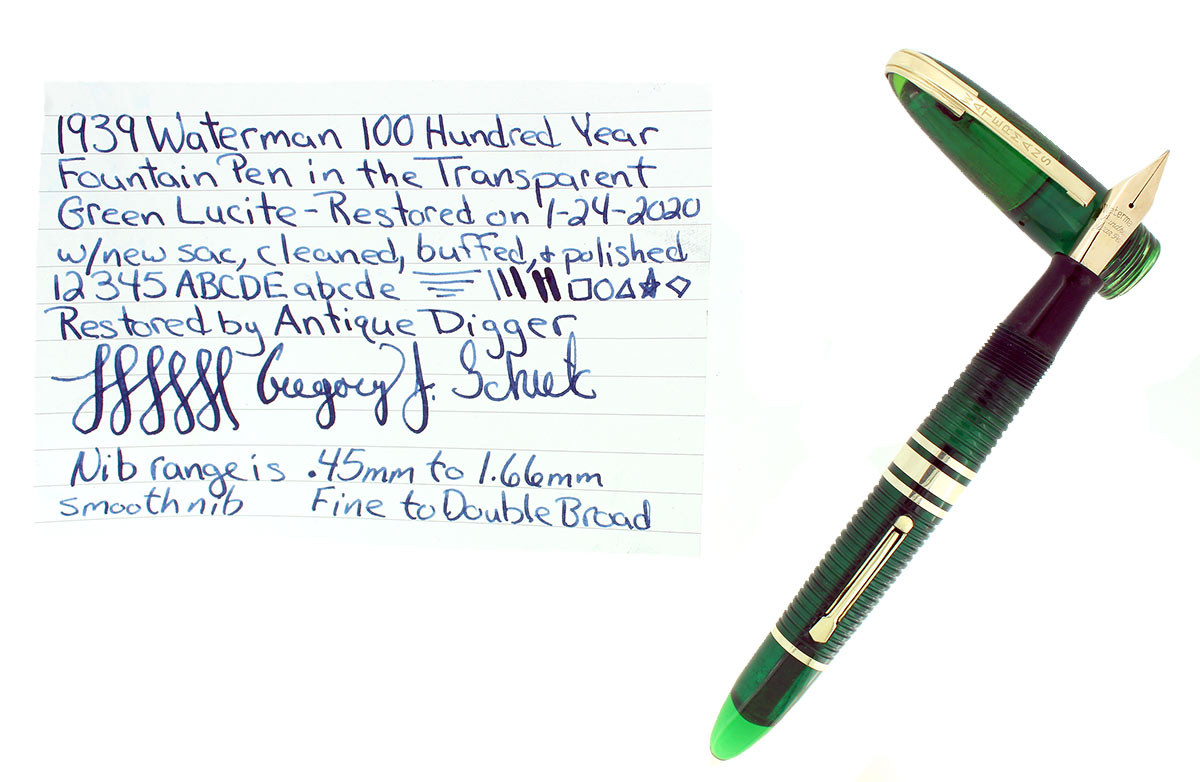 1939 Waterman 100 Hundred Year
Fountain Pen in the Transparent
Green Lucite - Restored on 1-24-2020
w/new sac, cleaned, buffed, + polished
12345 ABCDE abcde
Restored by Antique Digger
Gregory J. Schiek
Nib range is .45mm to 1.66mm
smooth nib Fine to Double Broad
WATERMANS